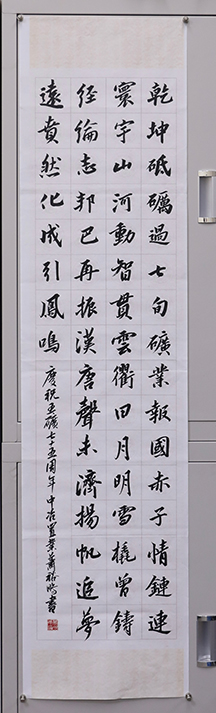 乾坤砥礪過七旬礦業報國赤子情鏈連
寰宇山河動智貫雲衢日月明雪橇曾鑄
经綸志邦巴再振漢唐聲未濟揚帆追夢
遠賁然化成引鳳鳴
慶祝五礦七十五周年 中冶置業蕭書